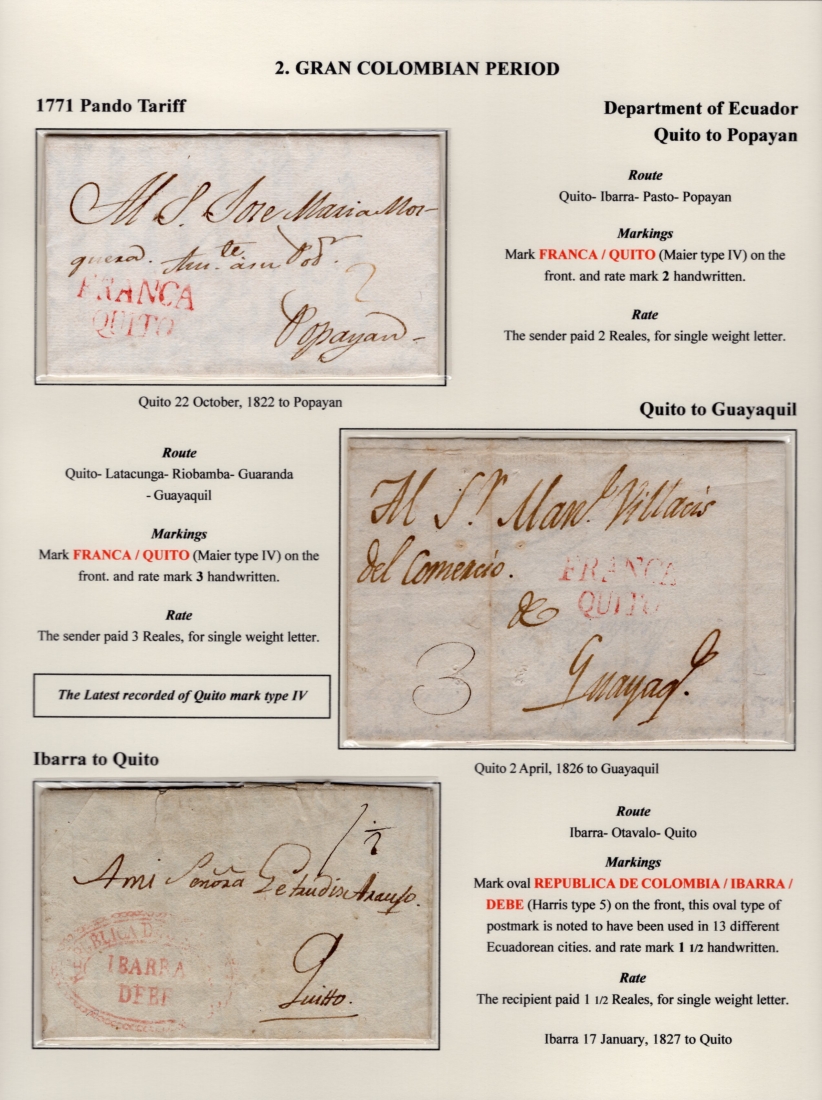 2. GRAN COLOMBIAN PERIOD
1771 Pando Tariff
Department of Ecuador
Quito to Popayan
Al S. Jose Maria Mos-
quera. Am.te á su Pod.r
2
FRANCA
QUITO
Popayan-
Quito 22 October, 1822 to Popayan
Route
Quito- Ibarra- Pasto- Popayan
Markings
Mark FRANCA / QUITO (Maier type IV) on the
front. and rate mark 2 handwritten.
Rate
The sender paid 2 Reales, for single weight letter.
Quito to Guayaquil
Route
Quito- Latacunga- Riobamba- Guaranda
- Guayaquil
Markings
Mark FRANCA / QUITO (Maier type IV) on the
front. and rate mark 3 handwritten.
Rate
The sender paid 3 Reales, for single weight letter.
The Latest recorded of Quito mark type IV
Al S.r Man.l Villacis
del Comercio.
FRANCA
QUITO
de
3
Guayaq.l
Quito 2 April, 1826 to Guayaquil
Ibarra to Quito
1 1/2
Ami Señora
REPUBLICA D
IBARRA
DEBE
Quitto.
Route
Ibarra- Otavalo- Quito
Markings
Mark oval REPUBLICA DE COLOMBIA / IBARRA /
DEBE (Harris type 5) on the front, this oval type of
postmark is noted to have been used in 13 different
Ecuadorean cities. and rate mark 1 1/2 handwritten.
Rate
The recipient paid 1 1/2 Reales, for single weight letter.
Ibarra 17 January, 1827 to Quito